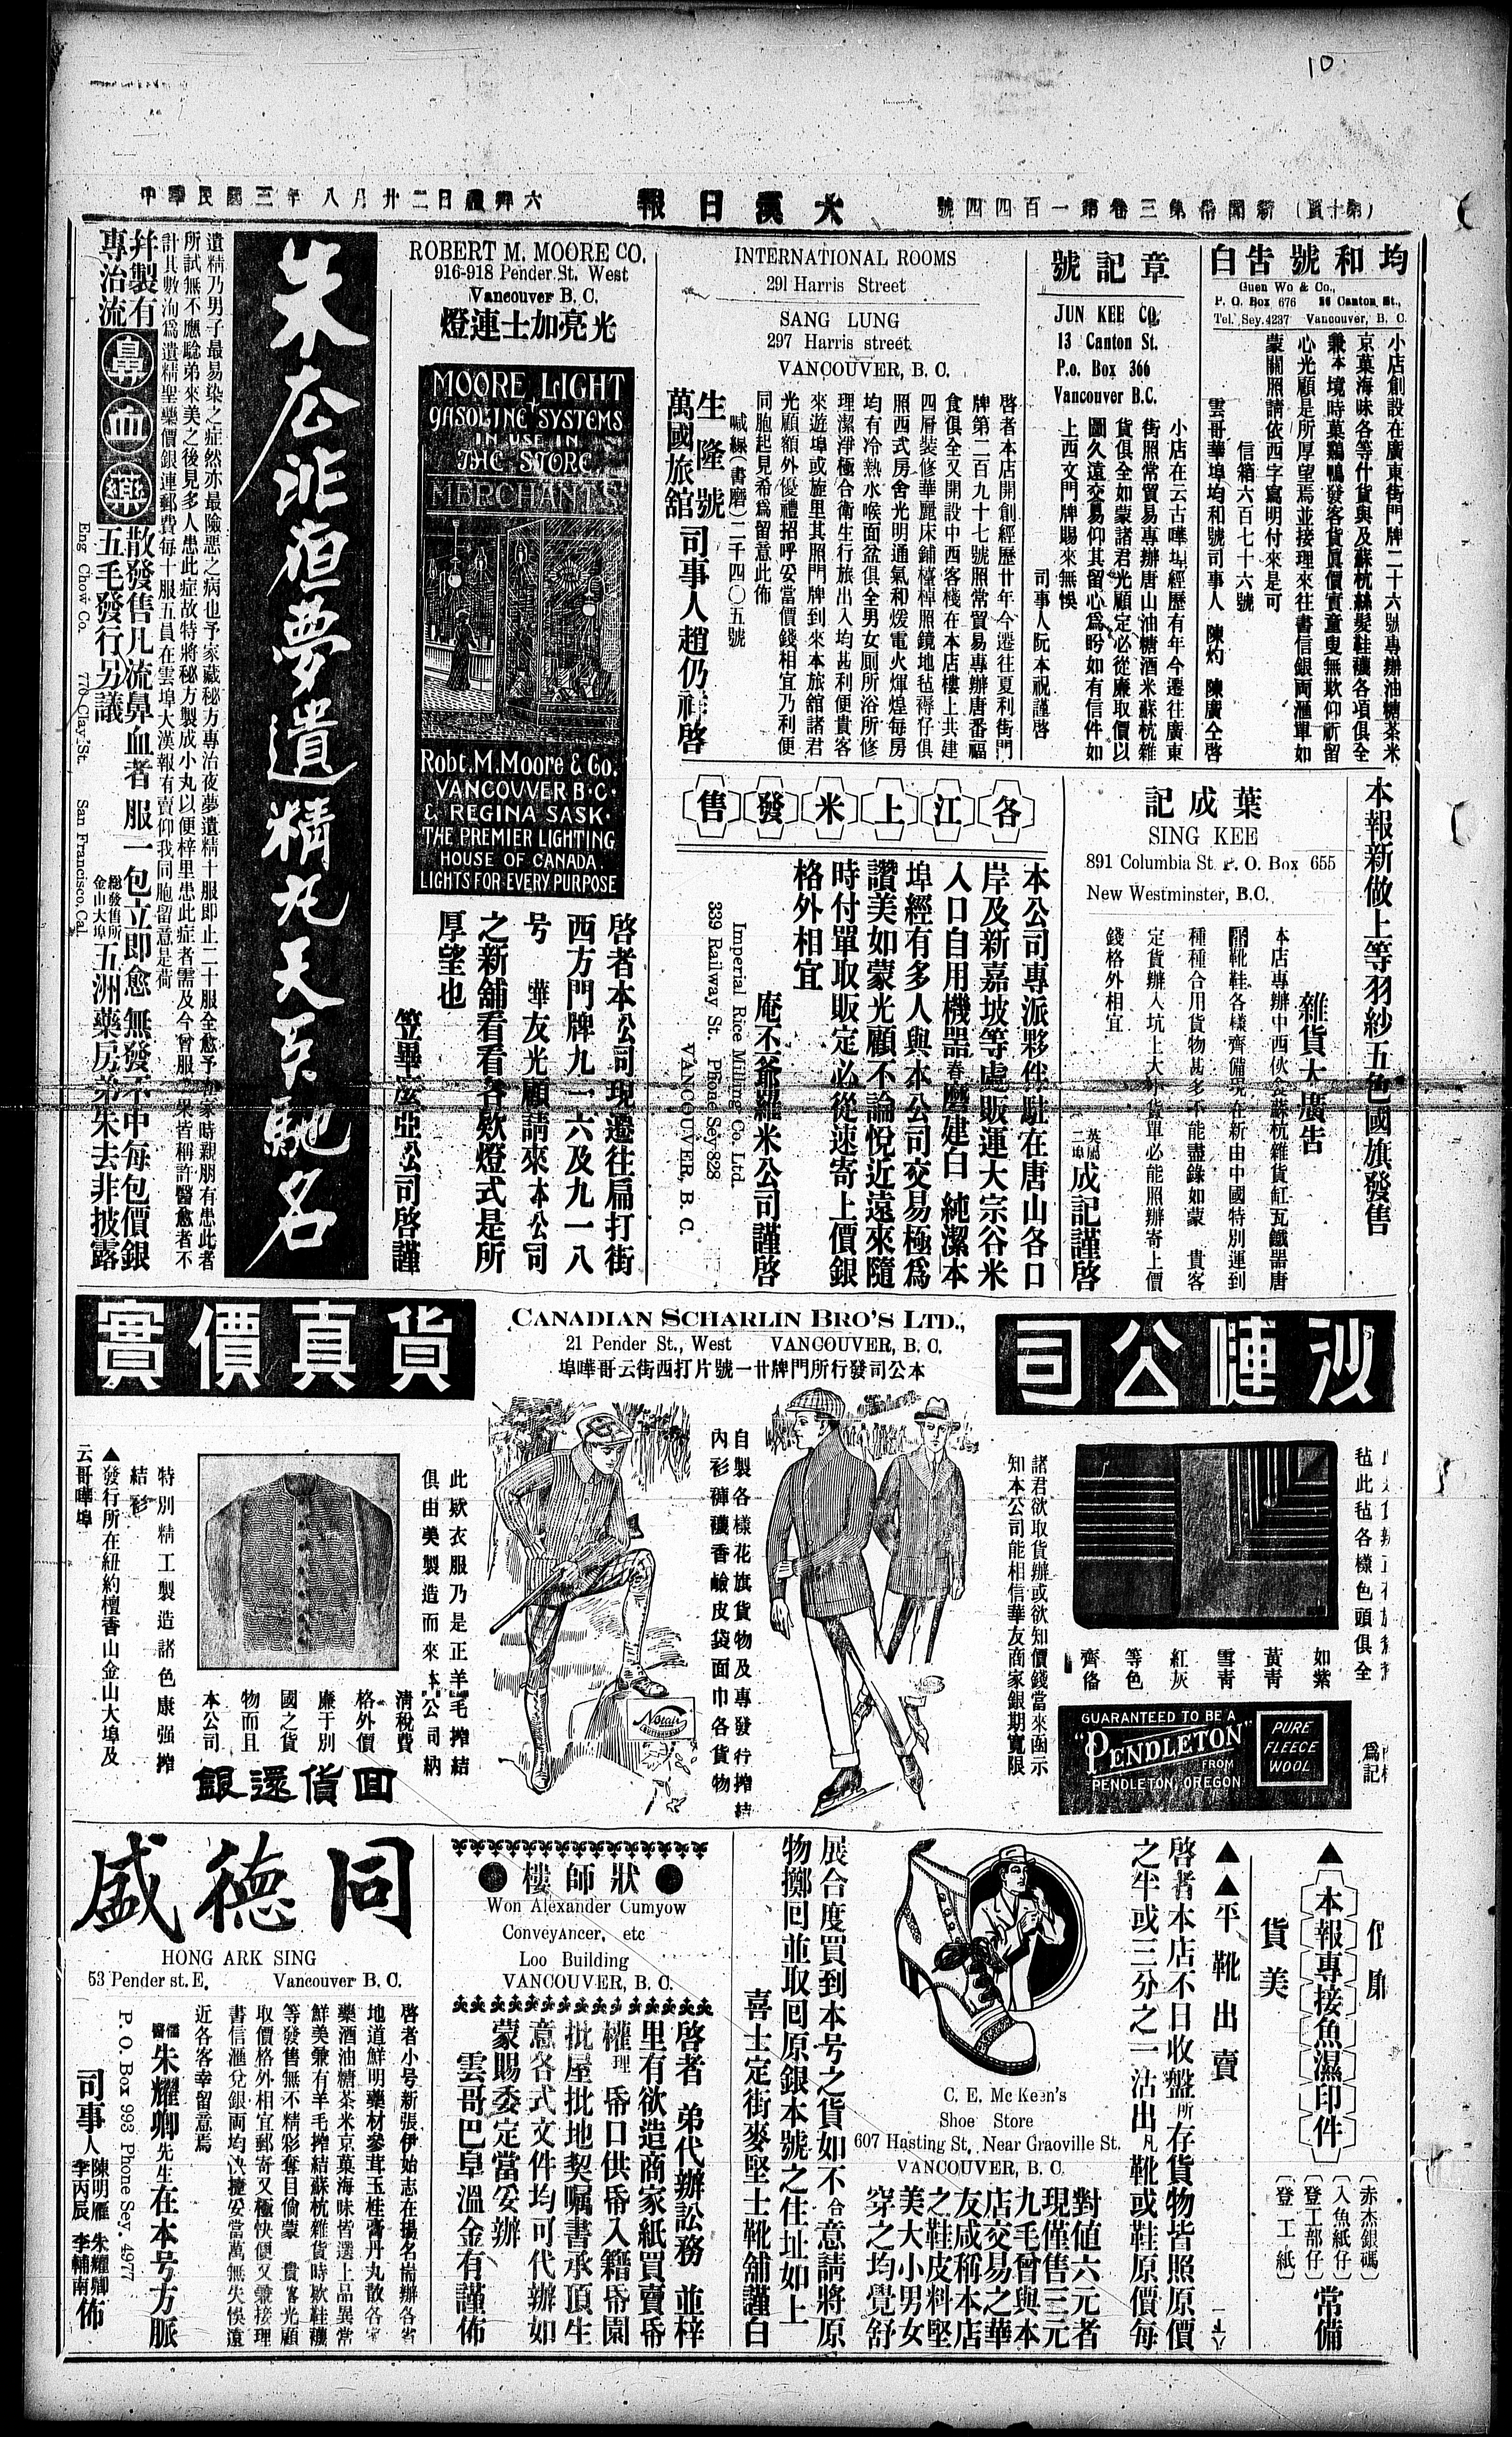 10.
（第十頁）新聞第三卷第一百四四號
大漢日報
中華民國三年八月廿二日禮拜六
均和號告白
Guen Wo & Co.,
P. O. Box 676 26 Canton St.,
Tel. Sey. 4237 Vancouver, B. C.
小店創設在廣東街門牌二十六號專辦油糖茶米
京菓海味各等什貨與及蘇杭絲髮鞋襪各項俱全
兼本境時菓鷄鴨發客貨眞價實童叟無欺仰祈留
心光顧是所厚望焉並接理來往書信銀両滙單如
蒙關照請依西字寫明付來是可
信箱六百七十六號
雲哥華埠均和號司事人 陳灼 陳廣仝啓
章記號
JUN KEE CO,
13 Canton St.
P.o. Box 366
Vancouver B.C.
小店在云古嘩埠經歷有年今遷往廣東
街照常貿易專辦唐山油糖酒米蘇杭雜
貨俱全如蒙諸君光顧定必從廉取價以
圖久遠交易仰其留心爲盼如有信件如
上西文門牌賜來無悞
司事人阮本祝謹啓
INTERNATIONAL ROOMS
291 Harris Street
SANG LUNG
297 Harris street
VANCOUVER, B. C.
啓者本店開創經歷廿年今遷往夏利街門
牌第二百九十七號照常貿易專辦唐番福
食俱全又開設中西客棧在本店樓上共建
四層裝修華麗床鋪檯椅照鏡地毡褥仔俱
照西式房舍光明通氣和煖電火輝煌每房
均有冷熱水喉面盆俱全男女厠所浴所修
理潔淨極合衛生行旅出入均甚利便貴客
來遊埠或旋里其照門牌到來本旅舘諸君
光顧額外優禮招呼妥當價錢相宜乃利便
同胞起見希爲留意此佈
喊線（書磨）二千四〇五號
生隆號
萬國旅舘
司事人趙仍祥啓
ROBERT M. MOORE CO.
916-918 Pender St. West
Vancouver B. C.
光亮加士連燈
MOORE LIGHT
GASOLINE SYSTEMS
IN USE IN
THE STORE
MERCHANTS
Robt. M. Moore & Co.
VANCOUVER B.C.
& REGINA SASK.
THE PREMIER LIGHTING
HOUSE OF CANADA.
LIGHTS FOR EVERY PURPOSE
啓者本公司現遷往扁打街
西方門牌九一六及九一八
号 華友光顧請來本公司
之新舖看看各欵燈式是所
厚望也
笠畢麼亞公司啓謹
朱公非狍夢遺精丸天下馳名
遺精乃男子最易染之症然亦最險惡之病也予家藏秘方專治夜夢遺精十服即止二十服全愈予在家時親朋有患此者
所試無不應騐弟來美之後見多人患此症故特將秘方製成小丸以便梓里患此症者需及今曾服之果皆稱許醫愈者不
計其數洵爲遺精聖藥價銀連郵費每十服五員在雲埠大漢報有賣仰我同胞留意是荷
并製有
專治流
鼻血藥
散發售凡流鼻血者服一包立即愈無發予中每包價銀
五毛發行另議
總發售所
金山大埠
五洲藥房弟朱去非披露
Eng Chow Co. 776 Clay St. San Francisco, Cal.
本報新做上等羽紗五色國旗發售
葉成記
SING KEE
891 Columbia St. P. O. Box 655
New Westminster, B.C.
雜貨大廣告
本店專辦中西伙食蘇杭雜貨缸瓦鐵器唐
靴鞋各樣齊備現在新由中國特別運到
種種合用貨物甚多不能盡錄如蒙 貴客
定貨辦入坑上大小貨單必能照辦寄上價
錢格外相宜
英屬
二埠
成記謹啓
各江上米發售
本公司專派夥伴駐在唐山各口
岸及新嘉坡等處販運大宗谷米
入口自用機器舂磨建白 純潔本
埠經有多人與本公司交易極爲
讚美如蒙光顧不論悅近遠來隨
時付單取販定必從速寄上價銀
格外相宜
庵丕爺羅米公司謹啓
Imperial Rice Milling Co. Ltd.
339 Railway St. Phone Sey 828
VANCOUVER, B. C.
沙嗹公司
貨真價實
CANADIAN SCHARLIN BRO'S LTD.,
21 Pender St., West VANCOUVER, B. C.
本公司發行所門牌廿一號片打西街云哥嘩埠
毡此毡各樣色頭俱全
如紫
黃靑
雪靑
紅灰
等色
齊俻
爲記
GUARANTEED TO BE A
"PENDLETON"
FROM
PENDLETON, OREGON
PURE
FLEECE
WOOL
諸君欲取貨辦或欲知價錢當來函示
知本公司能相信華友商家銀期寬限
自製各樣花旗貨物及專發行搾結
內衫褲襪香鹼皮袋面巾各貨物
此欵衣服乃是正羊毛搾結
俱由美製造而來本公司納
清稅費
格外價
廉于別
國之貨
物而且
本公司
回貨還銀
特別精工製造諸色康强搾
結衫
▲發行所在紐約檀香山金山大埠及
云哥嘩埠
▲本報專接魚濕印件
價廉
貨美
（赤杰銀碼）
（入魚紙仔）
（登工部仔）
（登工紙）
常備
▲▲平靴出賣
啓者本店不日收盤所存貨物皆照原價
之半或三分之一沽出凡靴或鞋原價每
對值六元者
現僅售三元
九毛曾與本
店交易之華
友咸稱本店
之鞋皮料堅
美大小男女
穿之均覺舒
C. E. Mc Keen's
Shoe Store
607 Hasting St. Near Graoville St.
VANCOUVER, B. C.
展合度買到本号之貨如不合意請將原
物擲回並取回原銀本號之住址如上
喜士定街麥堅士靴舖謹白
狀師樓
Won Alexander Cumyow
Conveyancer, etc
Loo Building
VANCOUVER, B. C.
啓者 弟代辦訟務 並梓
里有欲造商家紙買賣帋
權理帋口供帋入籍帋園
批屋批地契嘱書承頂生
意各式文件均可代辦如
蒙賜委定當妥辦
雲哥巴阜溫金有謹佈
同德盛
HONG ARK SING
53 Pender st. E. Vancouver B. C.
啓者小号新張伊始志在揚名耑辦各省
地道鮮明藥材參茸玉桂膏丹丸散各
藥酒油糖茶米京菓海味皆選上品異常
鮮美兼有羊毛搾結蘇杭雜貨時欵鞋襪
等發售無不精彩奪目倘蒙 貴客光顧
取價格外相宜郵寄又極快便又兼接理
書信滙兌銀両均快捷妥當萬無失悞遠
近各客幸留意焉
儒醫朱耀卿先生在本号方脈
P. O. Box 993 Phone Sey. 4977
司事人陳明雁 朱耀卿
李丙辰 李輔南佈